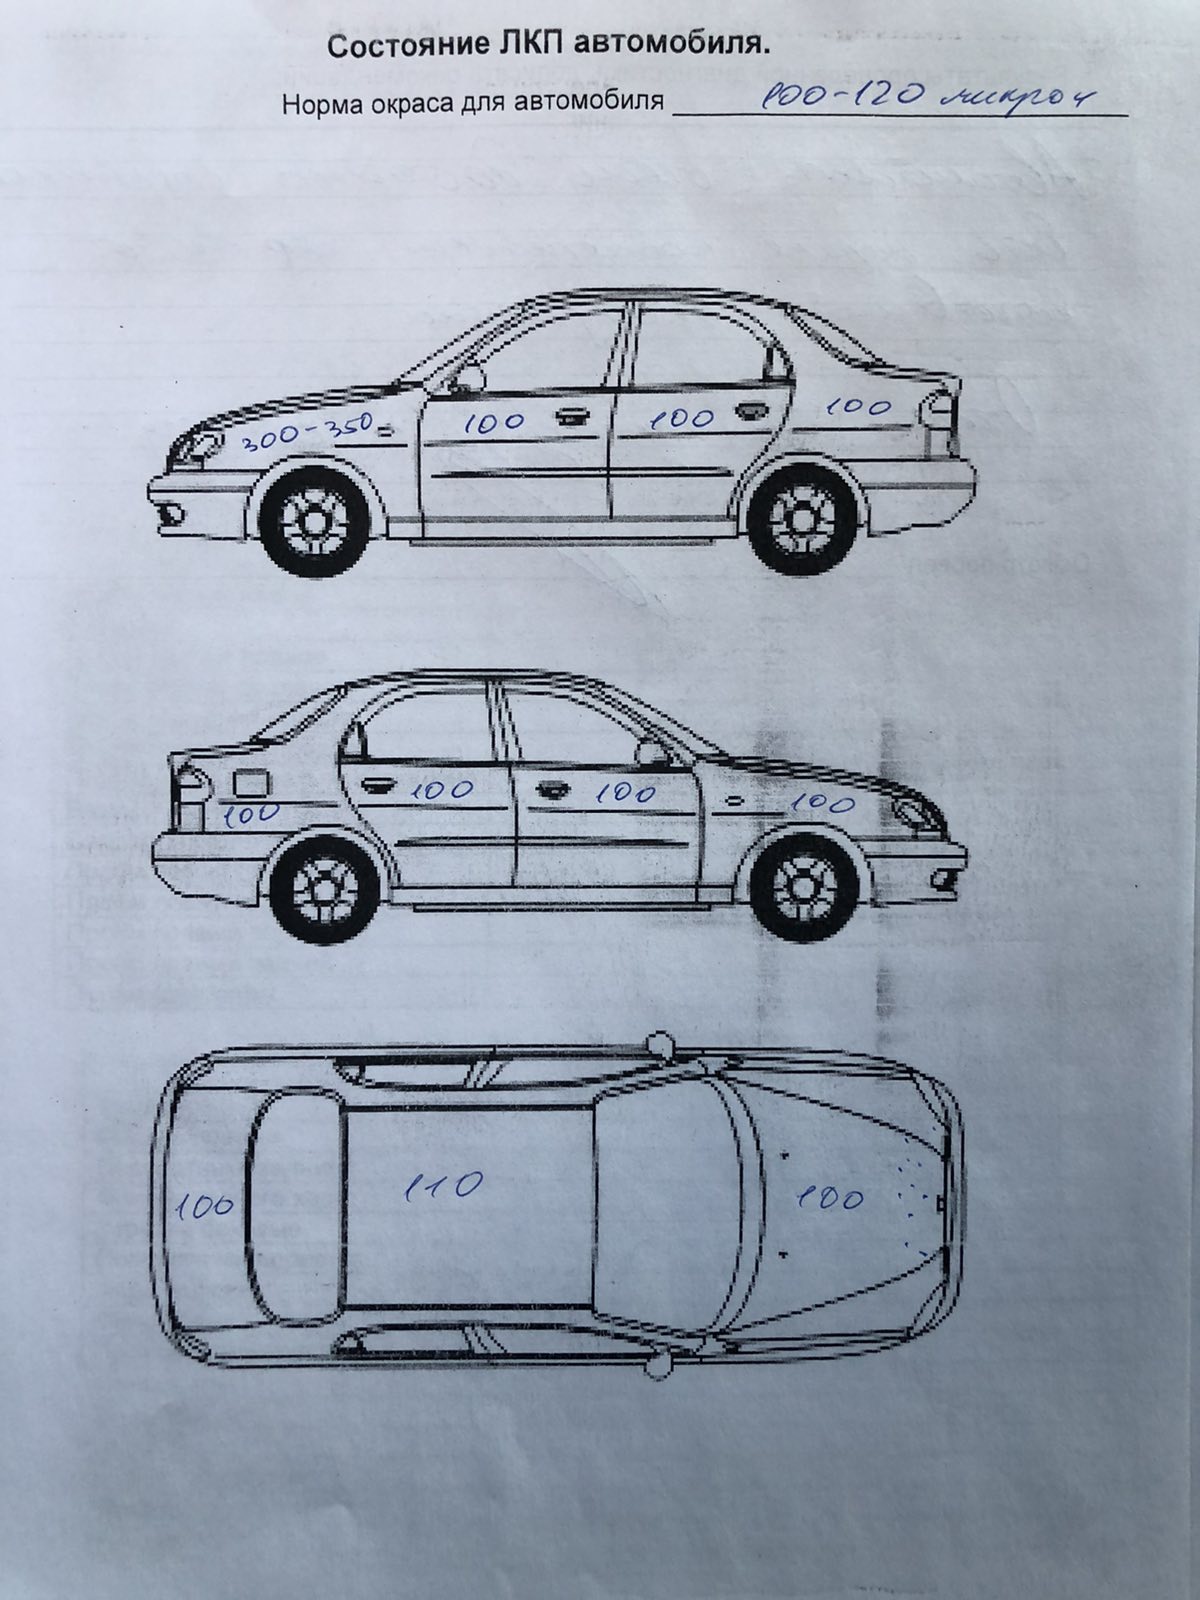 Состояние ЛКП автомобиля.
Норма окраса для автомобиля 100-120 микрон
300-350 100 100 100
100 100 100 100
100 110 100